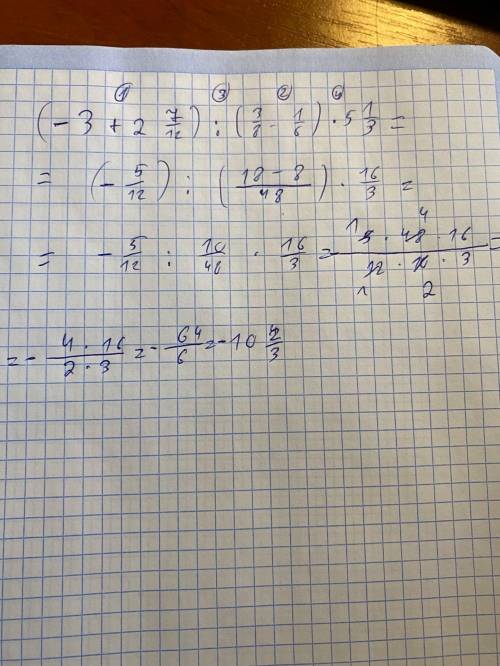 ① ③ ② ④
(-3 + 2 7/12) : (3/8 - 1/6) · 5 1/3 =
= (- 5/12) : ((18 - 8)/48) · 16/3 =
= - 5/12 : 10/48 · 16/3 = (5 · 48 · 16)/(12 · 10 · 3) =
1 4
1 2
= - (4 · 16)/(2 · 3) = - 64/6 = -10 2/3